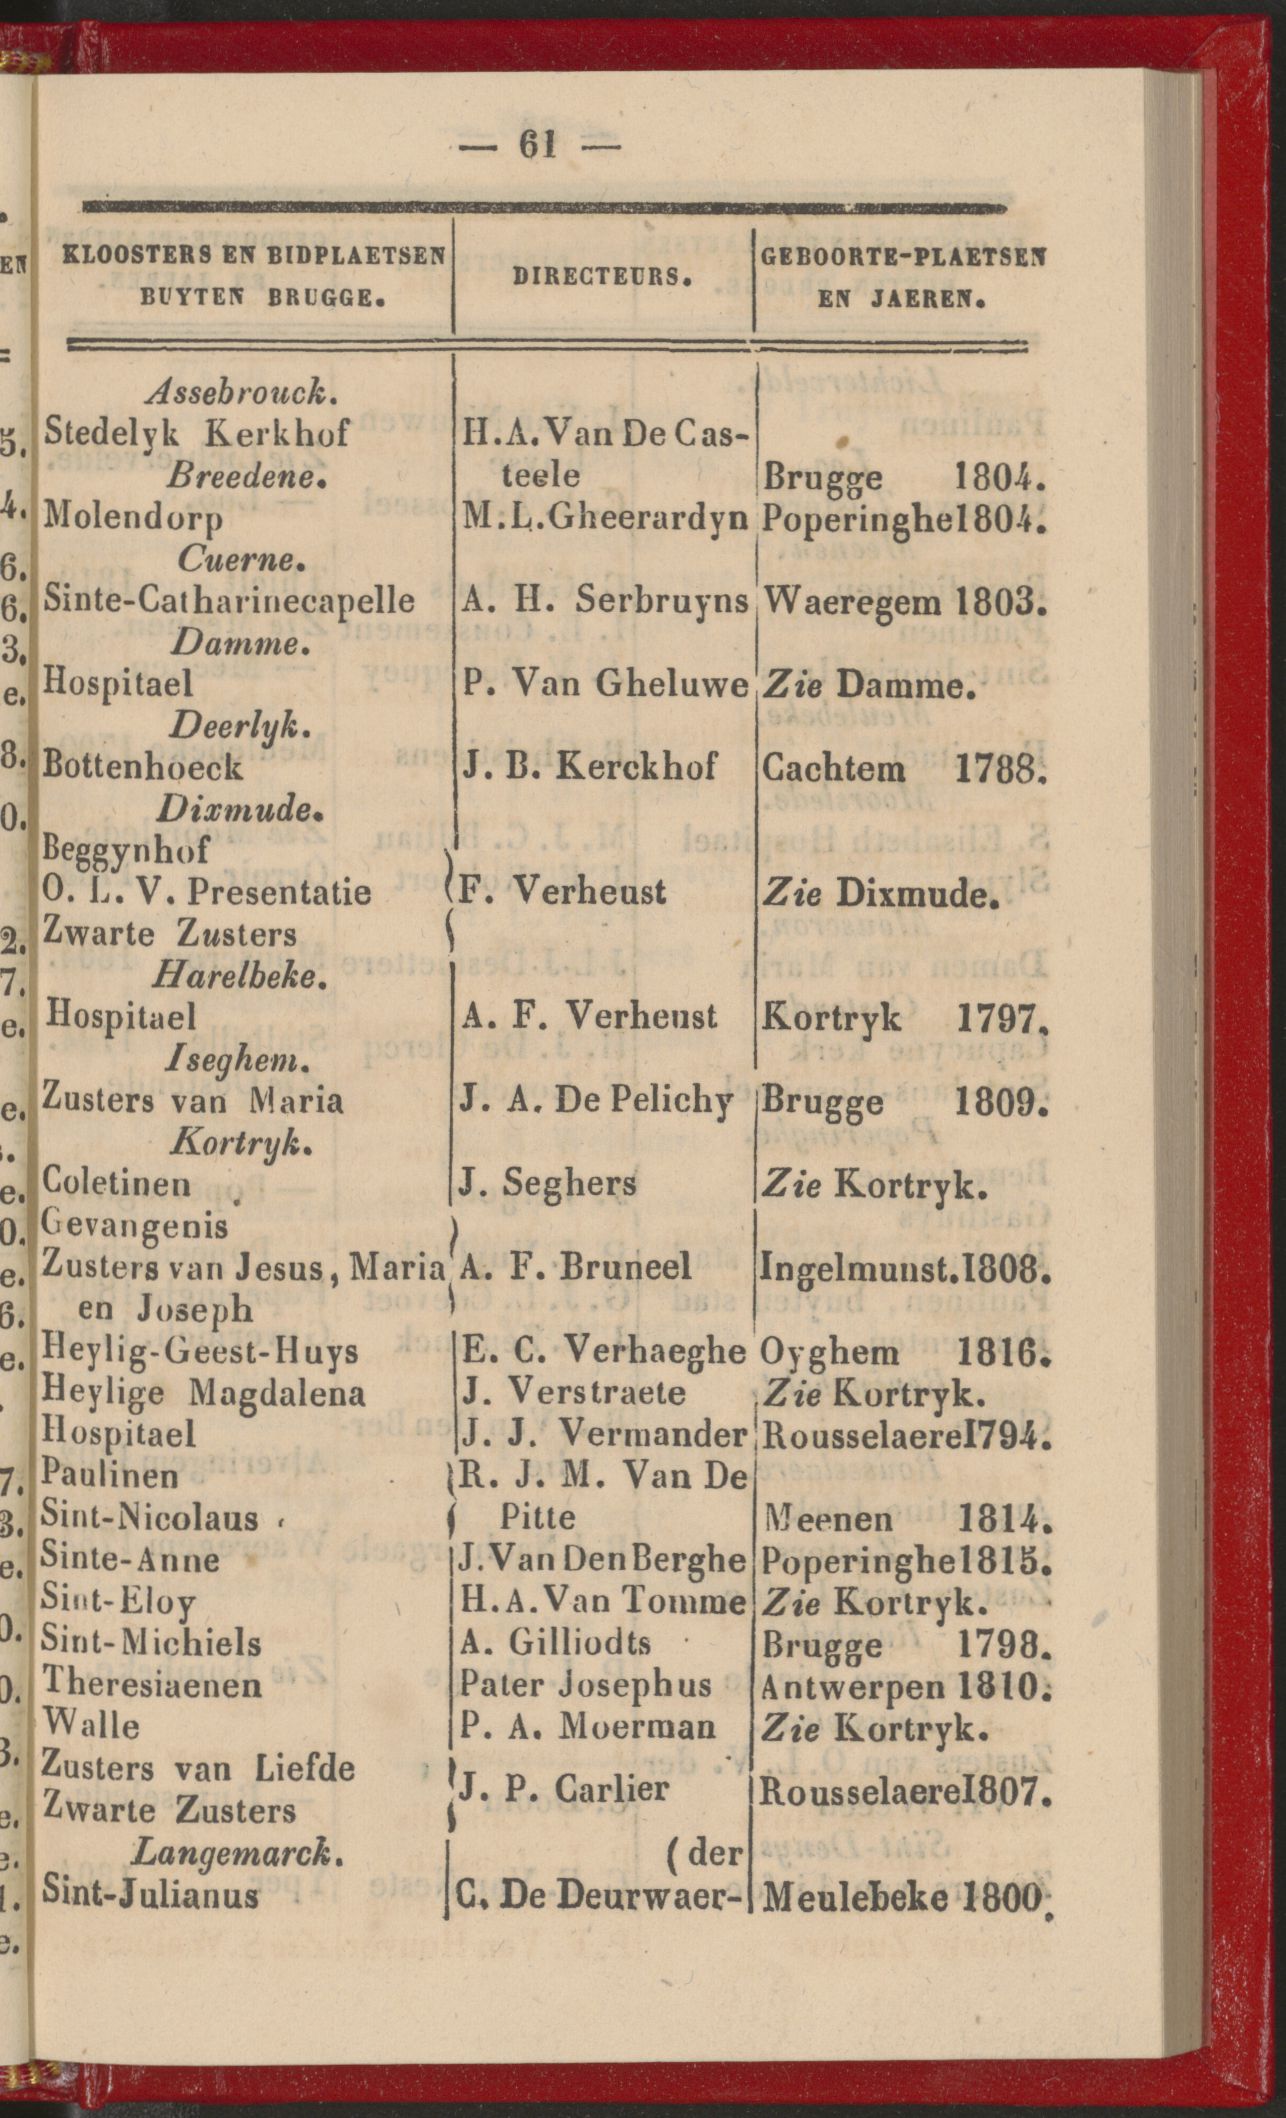 — 61 —
KLOOSTERS EN BIDPLAETSEN BUYTEN BRUGGE. DIRECTEURS. GEBOORTE-PLAETSEN EN JAEREN.
Assebrouck.
Stedelyk Kerkhof H.A. Van De Cas-
Breedene. teele Brugge 1804.
Molendorp M.L. Gheerardyn Poperinghe 1804.
Cuerne.
Sinte-Catharinecapelle A. H. Serbruyns Waeregem 1803.
Damme.
Hospitael P. Van Gheluwe Zie Damme.
Deerlyk.
Bottenhoeck J. B. Kerckhof Cachtem 1788.
Dixmude.
Beggynhof
O. L. V. Presentatie F. Verheust Zie Dixmude.
Zwarte Zusters
Harelbeke.
Hospitael A. F. Verheust Kortryk 1797.
Iseghem.
Zusters van Maria J. A. De Pelichy Brugge 1809.
Kortryk.
Coletinen J. Seghers Zie Kortryk.
Gevangenis
Zusters van Jesus, Maria A. F. Bruneel Ingelmunst. 1808.
en Joseph
Heylig-Geest-Huys E. C. Verhaeghe Oyghem 1816.
Heylige Magdalena J. Verstraete Zie Kortryk.
Hospitael J. J. Vermander Rousselaere 1794.
Paulinen R. J. M. Van De
Sint-Nicolaus Pitte Meenen 1814.
Sinte-Anne J. Van Den Berghe Poperinghe 1815.
Sint-Eloy H.A. Van Tomme Zie Kortryk.
Sint-Michiels A. Gilliodts Brugge 1798.
Theresiaenen Pater Josephus Antwerpen 1810.
Walle P. A. Moerman Zie Kortryk.
Zusters van Liefde
J. P. Carlier Rousselaere 1807.
Zwarte Zusters
Langemarck. (der
Sint-Julianus C. De Deurwaer- Meulebeke 1800.